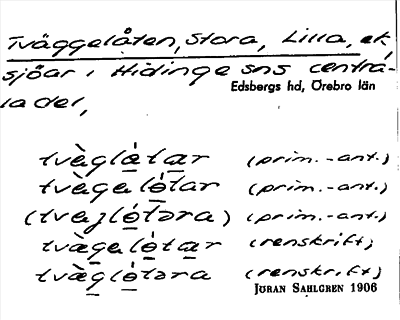 Tväggelåten, Stora, Lilla, ek,
sjöar i Hidinge sns centra-
la del,
Edsbergs hd, Örebro län
tvæ̀glȧ́tar (prim.-ant.)
tvægalȯ́tar (prim.-ant.)
(tvajlȯ́tәra) (prim.-ant.)
tvæ̀galȯtar (renskrift)
tvæ̀glȯ́tәra (renskrift)
JÖRAN SAHLGREN 1906